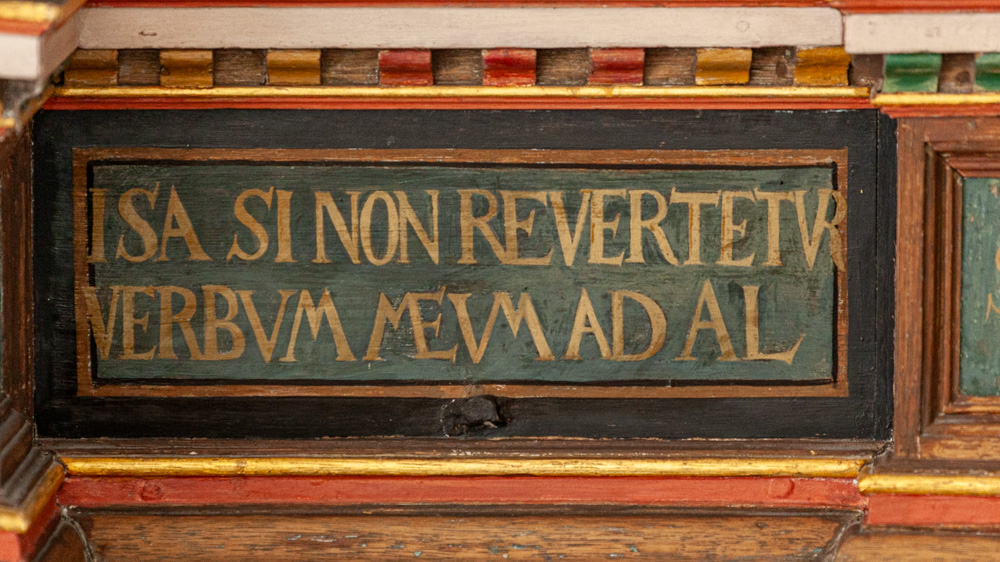 ISA SI NON REVERTETVR
VERBVM MEVM AD AL